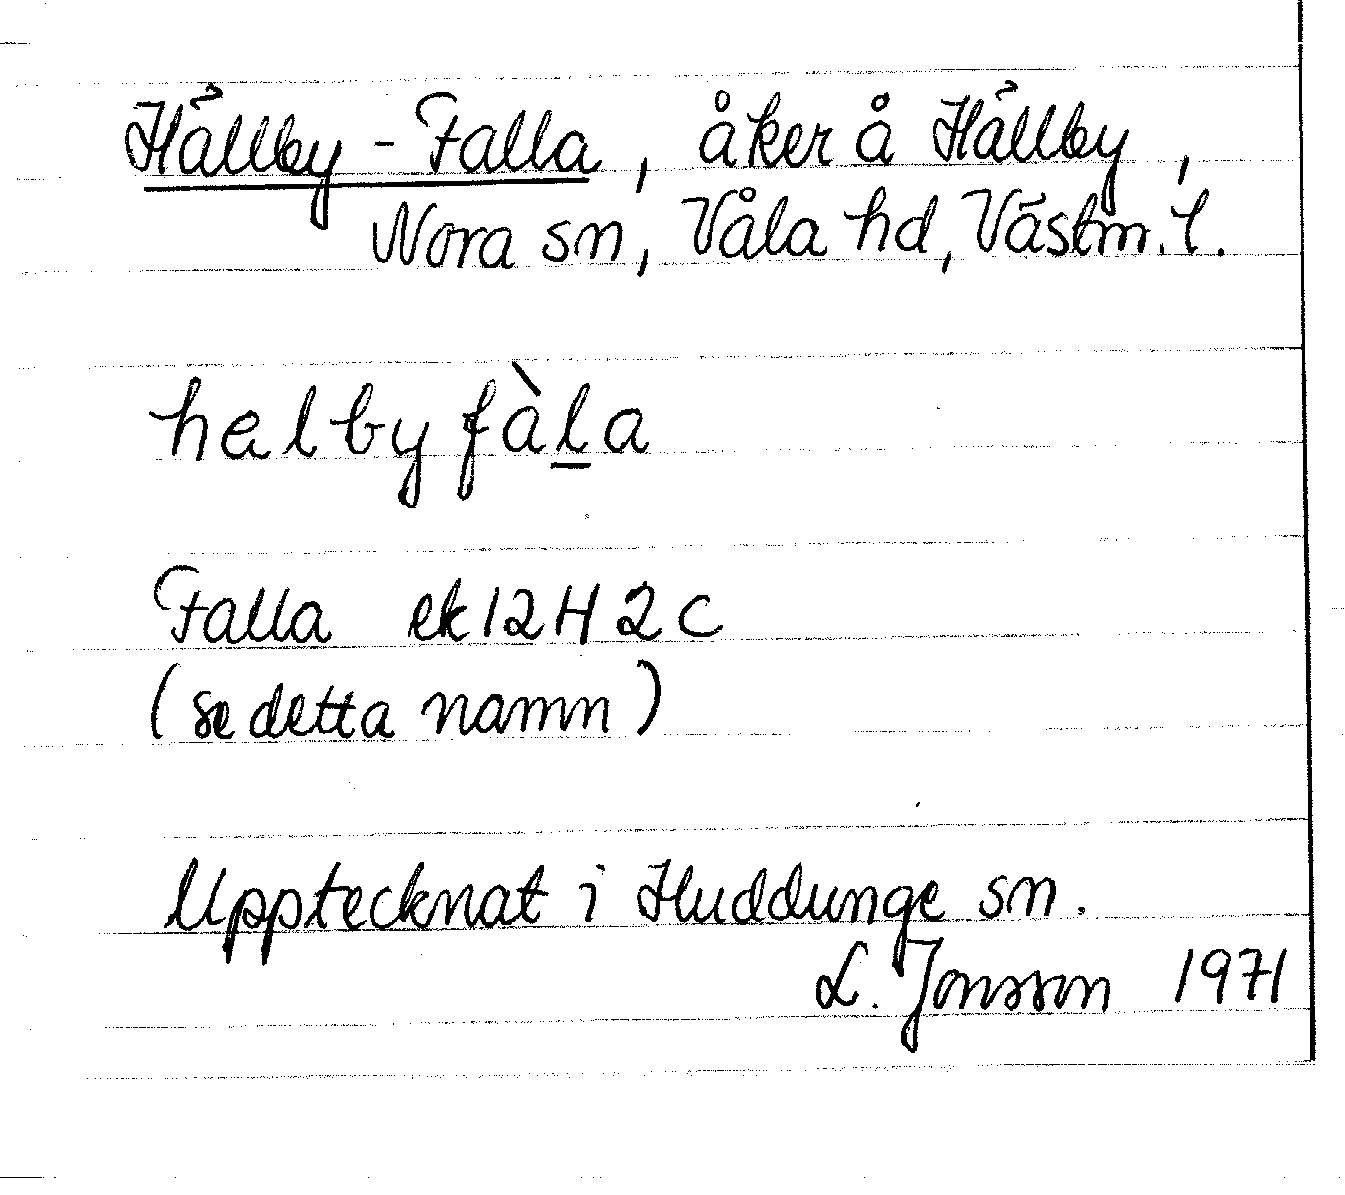 Hållby - Falla, åker å Hållby,
Nora sn, Våla hd, Västm. l.
helby fàl̲a
Falla ek 12 H 2 c
(se detta namn)
Upptecknat i Huddunge sn.
L. Jonsson 1971